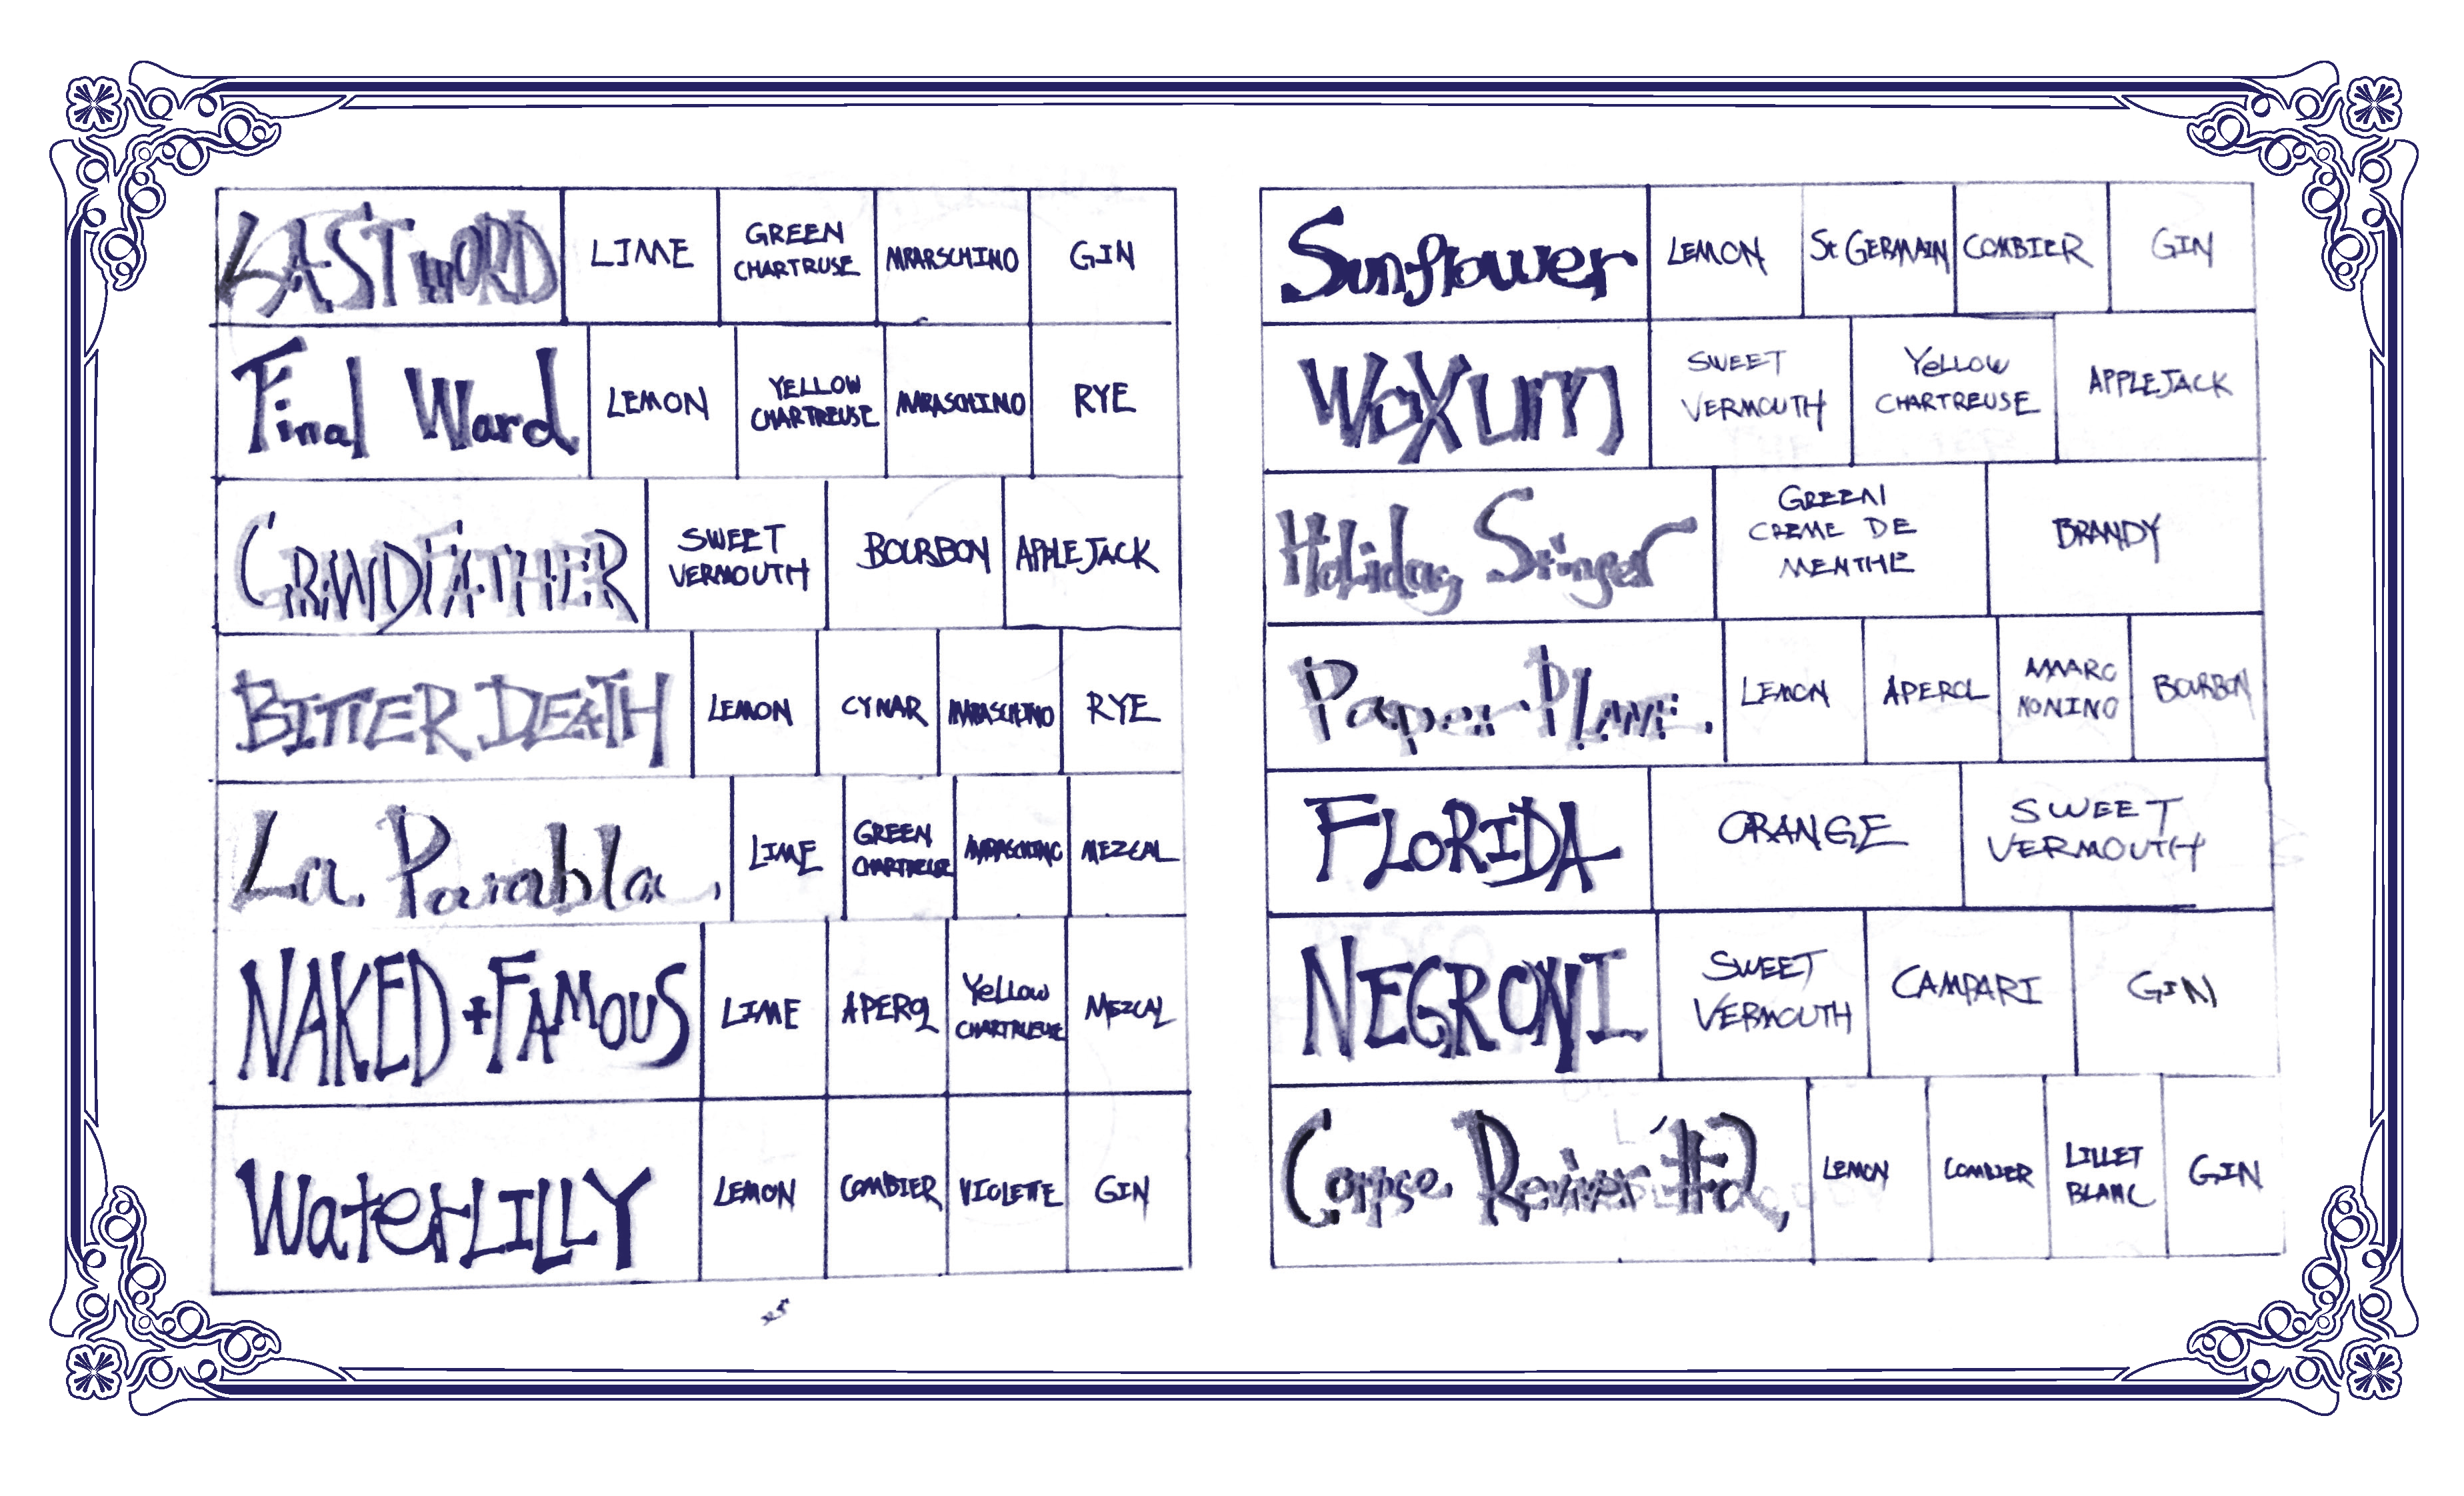 LAST WORD
LIME
GREEN
CHARTRUSE
MRARSCHINO
GIN
Final Ward
LEMON
YELLOW
CHARTREUSE
MARASCHINO
RYE
GRANDFATHER
SWEET
VERMOUTH
BOURBON
APPLEJACK
BITTER DEATH
LEMON
CYNAR
MARASCHINO
RYE
La Parabla
LIME
GREEN
CHARTREUSE
MARASCHINO
MEZCAL
NAKED + FAMOUS
LIME
APEROL
YELLOW
CHARTRUEUSE
MEZCAL
WaterLILLY
LEMON
COMBIER
VIOLETTE
GIN
Sunflower
LEMON
St GERMAIN
COMBIER
GIN
WoXUM
SWEET
VERMOUTH
YELLOW
CHARTREUSE
APPLEJACK
Holiday Stinger
GREEN
CREME DE
MENTHE
BRANDY
Paper Plane
LEMON
APEROL
AMARO
NONINO
BOURBON
FLORIDA
ORANGE
SWEET
VERMOUTH
NEGRONI
SWEET
VERMOUTH
CAMPARI
GIN
Corpse Reviver #2
LEMON
COMBIER
LILLET
BLANC
GIN